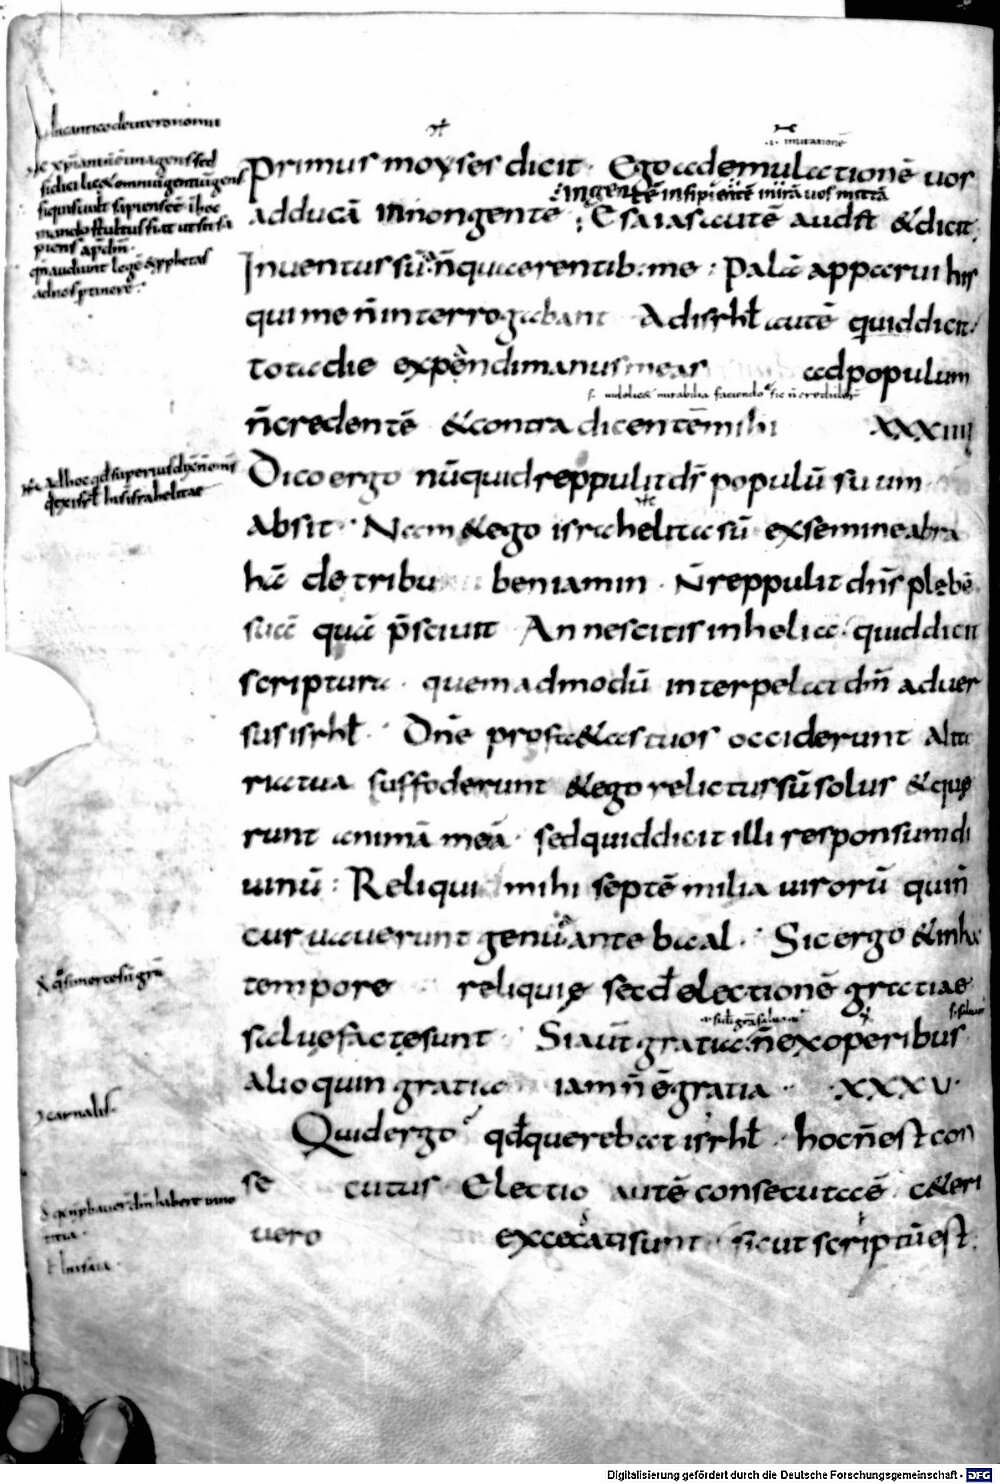 In cantico deuteronomii
primus moyses dicit · Ego ad emulationē uos
.i. imitationē
adducā in non gentē : Esaias autē audet & dicit.
In gentē insipientē in irā uos mittā
Inuentus sū a n̄ querentib: me : Palā apparui his
qui me n̄ interrogabant Ad isrhł autē quid dicit/
tota die expendi manus meas ad populum
n̄ credentē & contra dicentē mihi XXXIIII
Dico ergo nūquid reppulit ds̄ populū suum
Absit · Nam & ego israhelita sū ex semine abra
hā de tribu beniamin · N̄ reppulit dn̄s plebē
suā quā p̄sciuit An nescitis in helia · quid dicit
scriptura · quem ad modū interpelat dm̄ aduer
sus isrhł · Dn̄e profetas tuos occiderunt Alta
ria tua suffoderunt & ego relictus sū solus & quę
runt animā meā · sed quid dicit illi responsum di
uinū : Reliqui mihi septē milia uirorū qui n̄
curuauerunt genua ante baal · Sic ergo & in hoc
tempore reliquię secd̄ electionē gratiae
saluę factę sunt Si aut̄ gratia · n̄ ex operibus
Alio quin gratia iam n̄ ē gratia · XXXV ·
Quid ergo qd̄ querebat isrhł · hoc n̄ est con
secutus Electio autē consecuta ē · c&eri
uero excecati sunt · sicut scriptū est.
carnalis
Digitalisierung gefördert durch die Deutsche Forschungsgemeinschaft - DFG